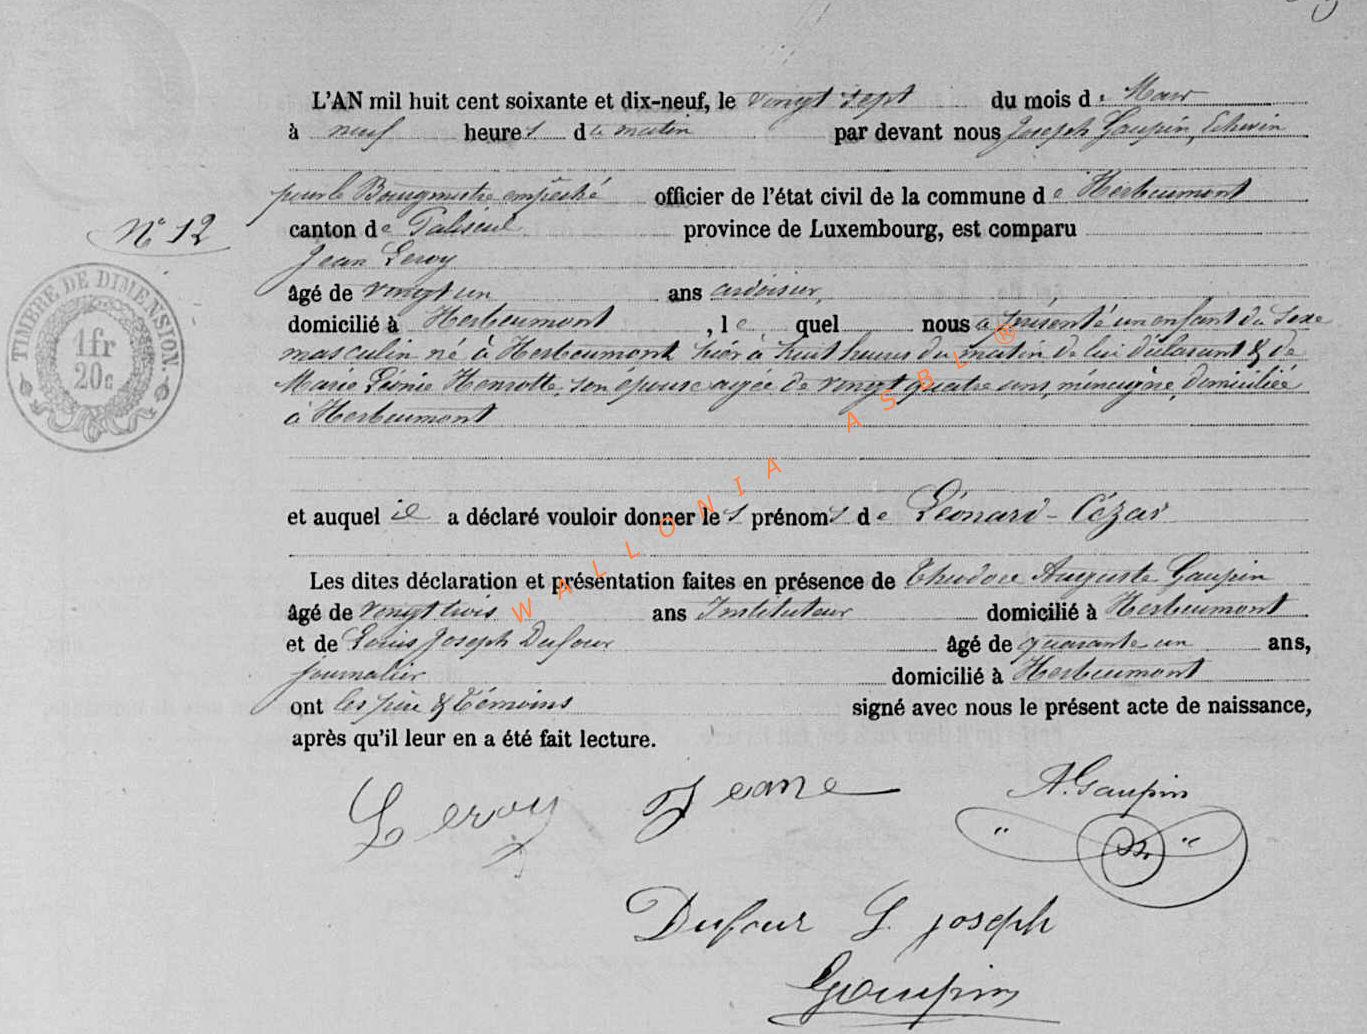 L'AN mil huit cent soixante et dix-neuf, le vingt sept du mois de Mars
à neuf heures du matin par devant nous Joseph Gaupin, Echevin
pour le Bourgmestre empêché officier de l'état civil de la commune de Herbeumont
N° 12
canton de Paliseul province de Luxembourg, est comparu
Jean Leroy
âgé de vingt un ans ardoisier,
domicilié à Herbeumont, lequel nous a présenté un enfant du sexe
masculin né à Herbeumont hier à huit heures du matin de lui déclarant & de
Marie Léonie Henrotte, son épouse agée de vingt quatre ans, ménagère, domiciliée
à Herbeumont
et auquel il a déclaré vouloir donner les prénoms de Léonard-Cézar
Les dites déclaration et présentation faites en présence de Théodore Auguste Gaupin
âgé de vingt trois ans Instituteur domicilié à Herbeumont
et de Louis Joseph Dufour âgé de quarante un ans,
journalier domicilié à Herbeumont
ont les père & témoins signé avec nous le présent acte de naissance,
après qu'il leur en a été fait lecture.
TIMBRE DE DIMENSION.
1fr
20c
WALLONIA ASBL ®
Leroy Jeane A. Gaupin
Dufour L. joseph
Gaupin